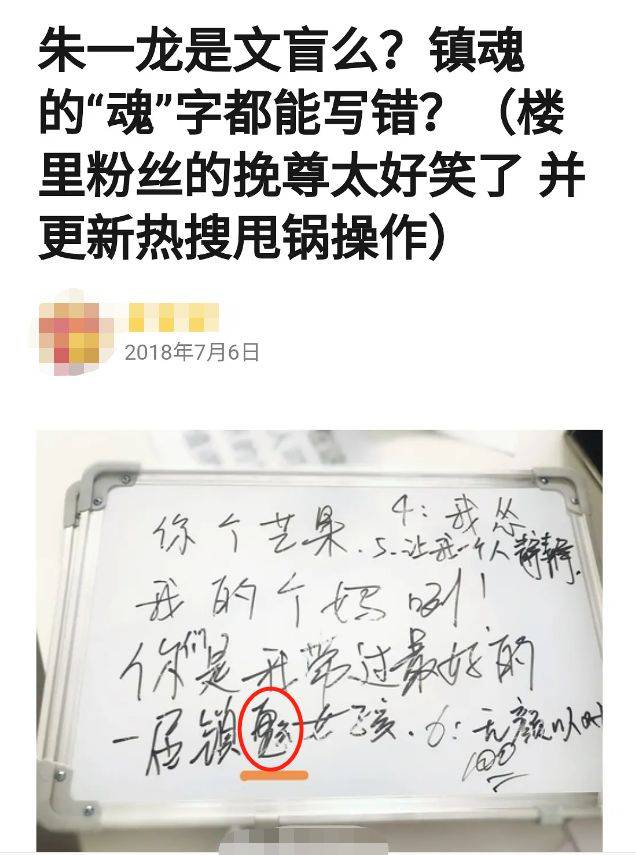 朱一龙是文盲么？镇魂
的“魂”字都能写错？（楼
里粉丝的挽尊太好笑了 并
更新热搜甩锅操作）
2018年7月6日
你个芒果.
4：我怂
5.让我一个人静静.
我的个妈咧！
你们是我带过最好的
一届镇女孩.
6：无颜以对
100